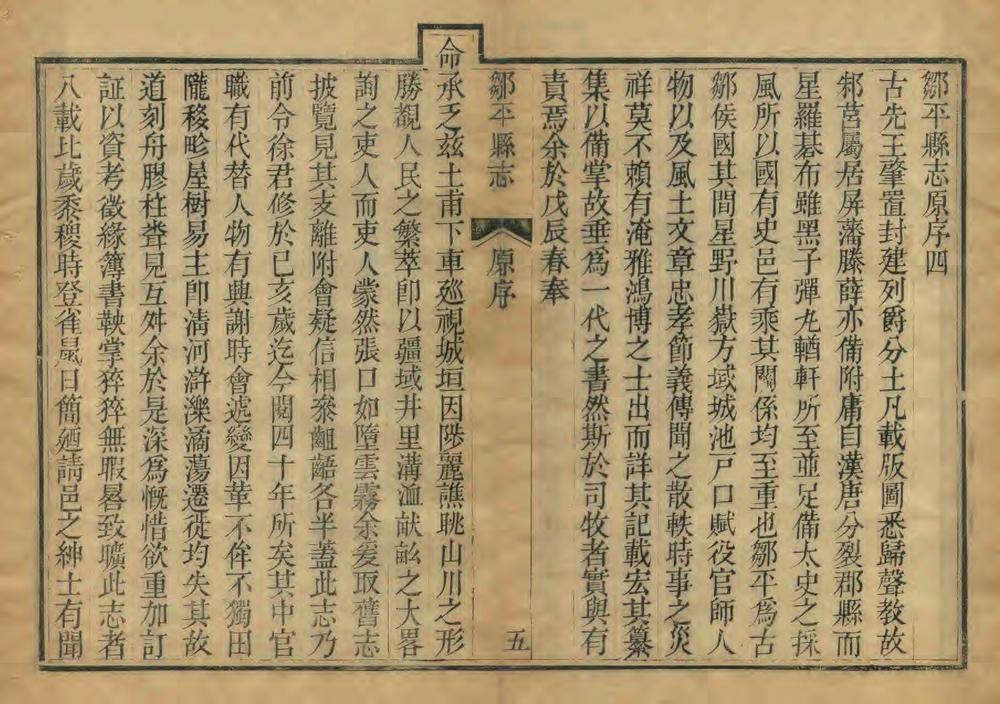 鄒平縣志原序四
古先王肇置封建列爵分土凡載版圖悉歸聲教故
邾莒屬居屏藩滕薛亦備附庸自漢唐分裂郡縣而
星羅碁布雖黑子彈丸輶軒所至並足備太史之採
風所以國有史邑有乘其關係均至重也鄒平爲古
鄒侯國其間星野川嶽方域城池戸口賦役官師人
物以及風土文章忠孝節義傳聞之散軼時事之災
祥莫不賴有淹雅鴻博之士出而詳其記載宏其纂
集以備掌故垂爲一代之書然斯於司牧者實與有
責焉余於戊辰春奉
鄒平縣志
原序
五
命承乏兹土甫下車廵視城垣因陟麗譙眺山川之形
勝覩人民之繁萃卽以疆域井里溝洫献訟之大畧
詢之吏人而吏人蒙然張口如墮雲霧余爰取舊志
披覽見其支離附會疑信相叅齟齬各半蓋此志乃
前令徐君修於己亥歲迄今閱四十年所矣其中官
職有代替人物有興謝時會遞變因革不侔不獨田
隴移畛屋樹易主卽淸河滸濼潏蕩遷徙均失其故
道刻舟膠柱聾見互舛余於是深爲慨惜欲重加訂
証以資考徵緣簿書鞅掌猝猝無暇畧致曠此志者
八載比歲黍稷時登雀鼠日簡廼請邑之紳士有聞